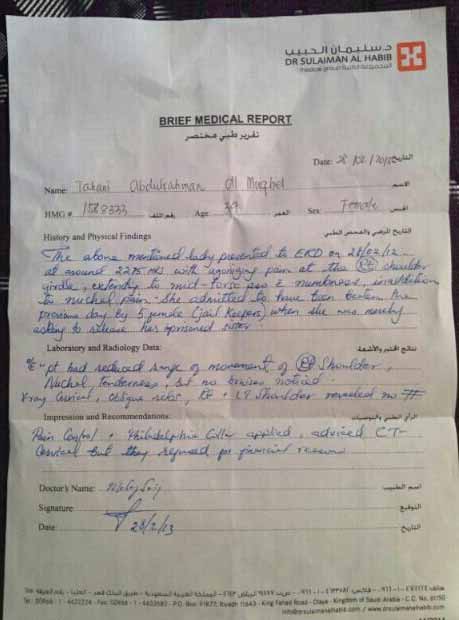 د. سليمان الحبيب
DR SULAIMAN AL HABIB
BRIEF MEDICAL REPORT
تقرير طبي مختصر
Date: 28 التاريخ
Name: Tahani Abdulrahman Al Mughel الاسم
HMG # 1583333 رقم الملف Age 39 العمر Sex Female الجنس
History and Physical Findings التاريخ المرضي والفحص الطبي
The above mentioned lady presented to ERD on 28/02/12
at around 2275 HRS with agonizing pain at the shoulder
girdle, extending to mid-torso numbness, in addition
to nuchal pain. She admitted to have been beaten the
previous day by 5 female (jail keepers) when she was merely
asking to release her prisoned sister.
Laboratory and Radiology Data: نتائج المختبر والأشعة:
pt had reduced range of movement of Shoulder,
Nuchal tenderness, but no bruises noticed.
X-ray Cervical, oblique Shoulder revealed no #
Impression and Recommendations: الرأي الطبي والتوصيات:
Pain Control + Philadelphia Collar applied, advised CT-
Cervical but they refused for financial reasons
Doctor's Name: اسم الطبيب:
Signature: التوقيع
Date: 28/2/13 التاريخ